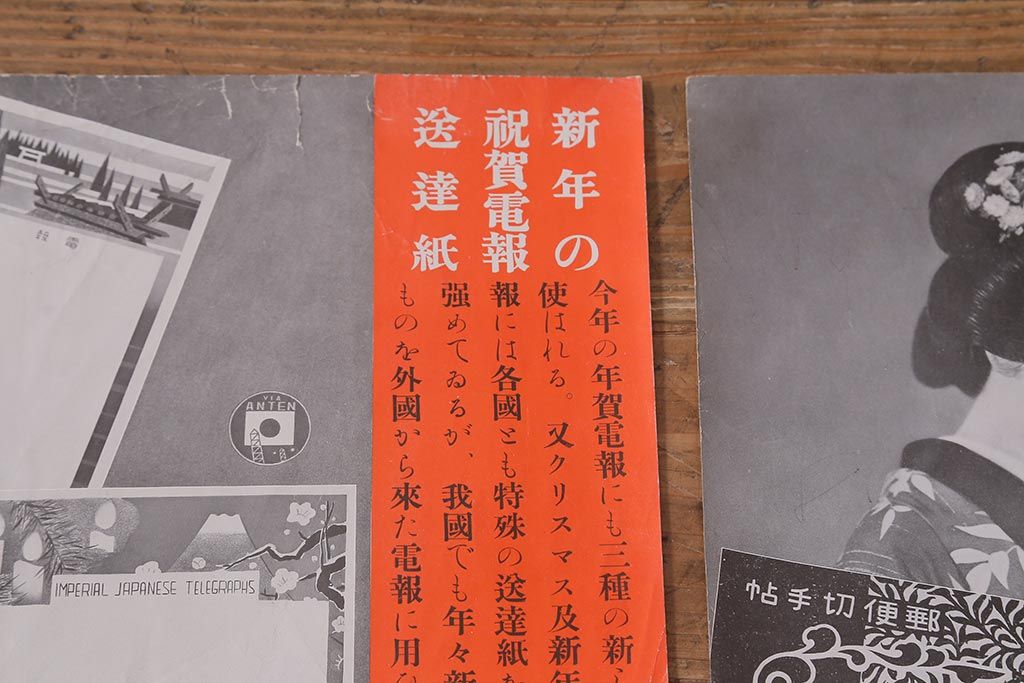 新年の
祝賀電報
送達紙
今年の年賀電報にも三種の新し
使はれる。又クリスマス及新年
報には各國とも特殊の送達紙を
强めてゐるが、我國でも年々新
ものを外國から來た電報に用ひ
報電
VIA
ANTEN
IMPERIAL JAPANESE TELEGRAPHS
帖手切便郵